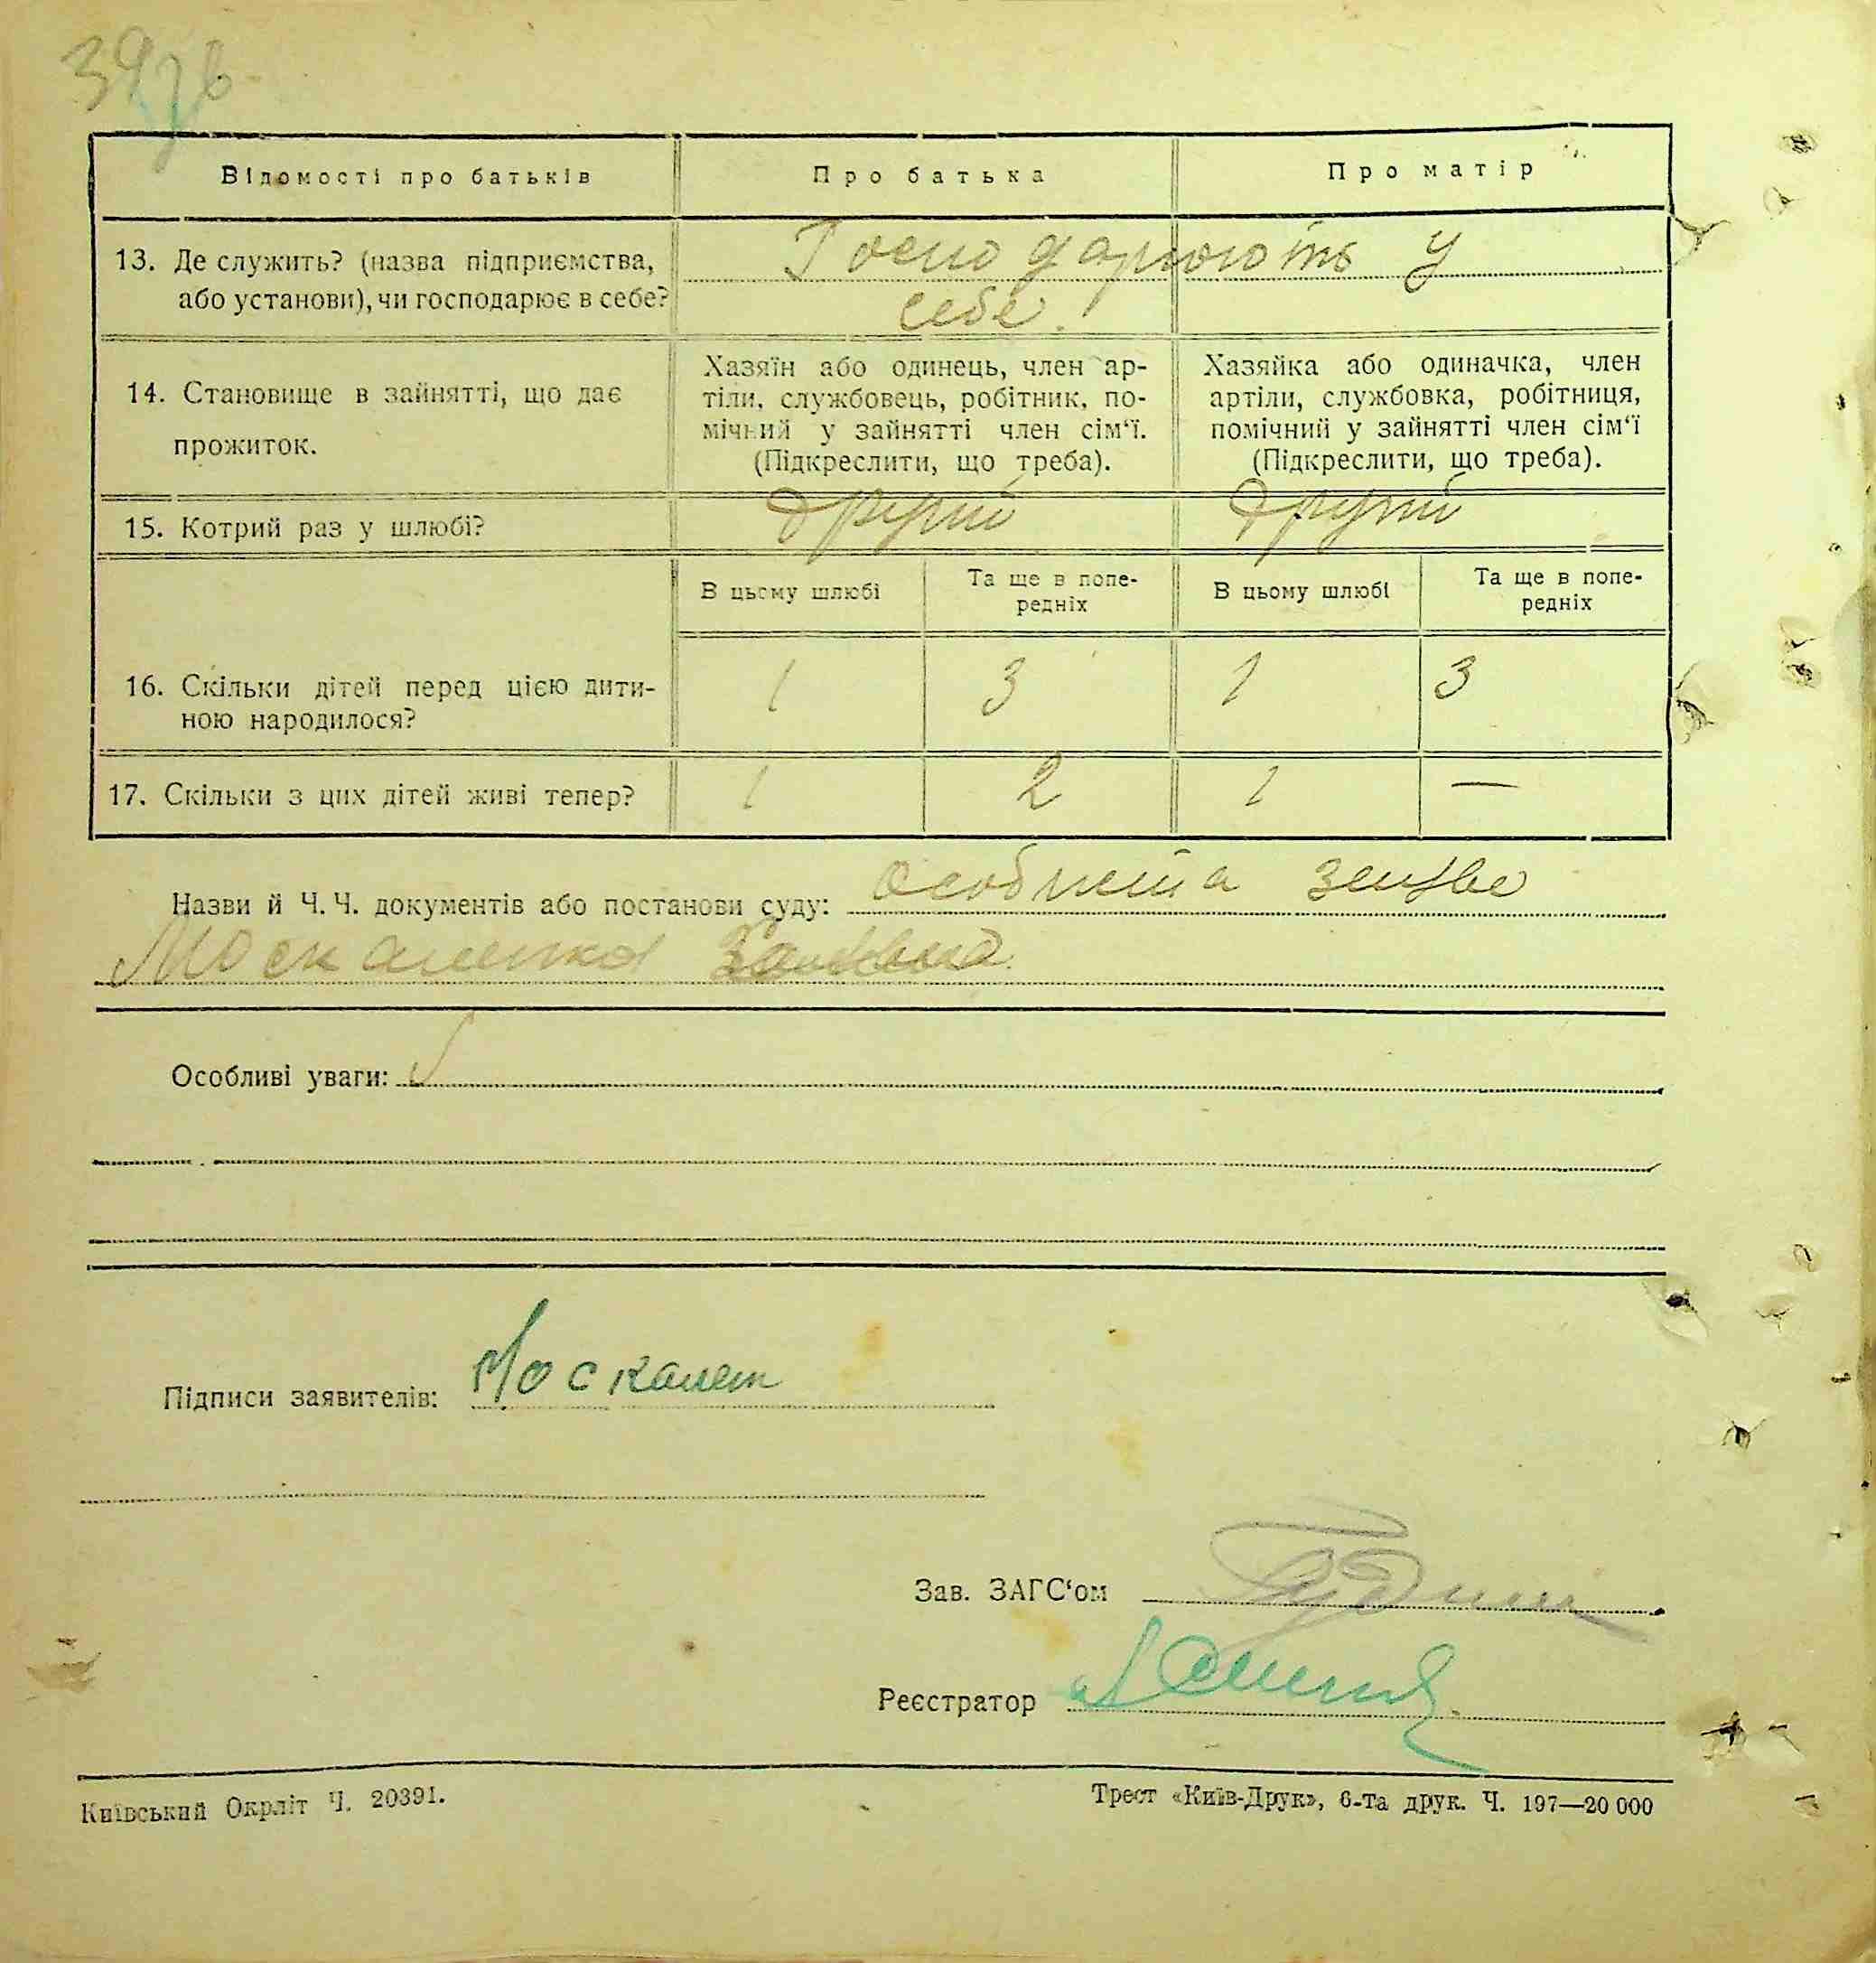 39
Відомості про батьків
Про батька
Про матір
13. Де служить? (назва підприємства,
або установи), чи господарює в себе?
Господарюють у
себе.
14. Становище в зайнятті, що дає
прожиток.
Хазяїн або одинець, член ар-
тіли, службовець, робітник, по-
мічний у зайнятті член сім‘ї.
(Підкреслити, що треба).
Хазяйка або одиначка, член
артіли, службовка, робітниця,
помічний у зайнятті член сім‘ї
(Підкреслити, що треба).
15. Котрий раз у шлюбі?
другий
другий
В цьому шлюбі
Та ще в попе-
редніх
В цьому шлюбі
Та ще в попе-
редніх
16. Скільки дітей перед цією дити-
ною народилося?
1
3
1
3
17. Скільки з цих дітей живі тепер?
1
2
1
—
Назви й Ч. Ч. документів або постанови суду: особиста
Москаленка
Особливі уваги:
Підписи заявителів: Москален
Зав. ЗАГС‘ом
Реєстратор
Київський Окрліт Ч. 20391.
Трест «Київ-Друк», 6-та друк. Ч. 197—20 000